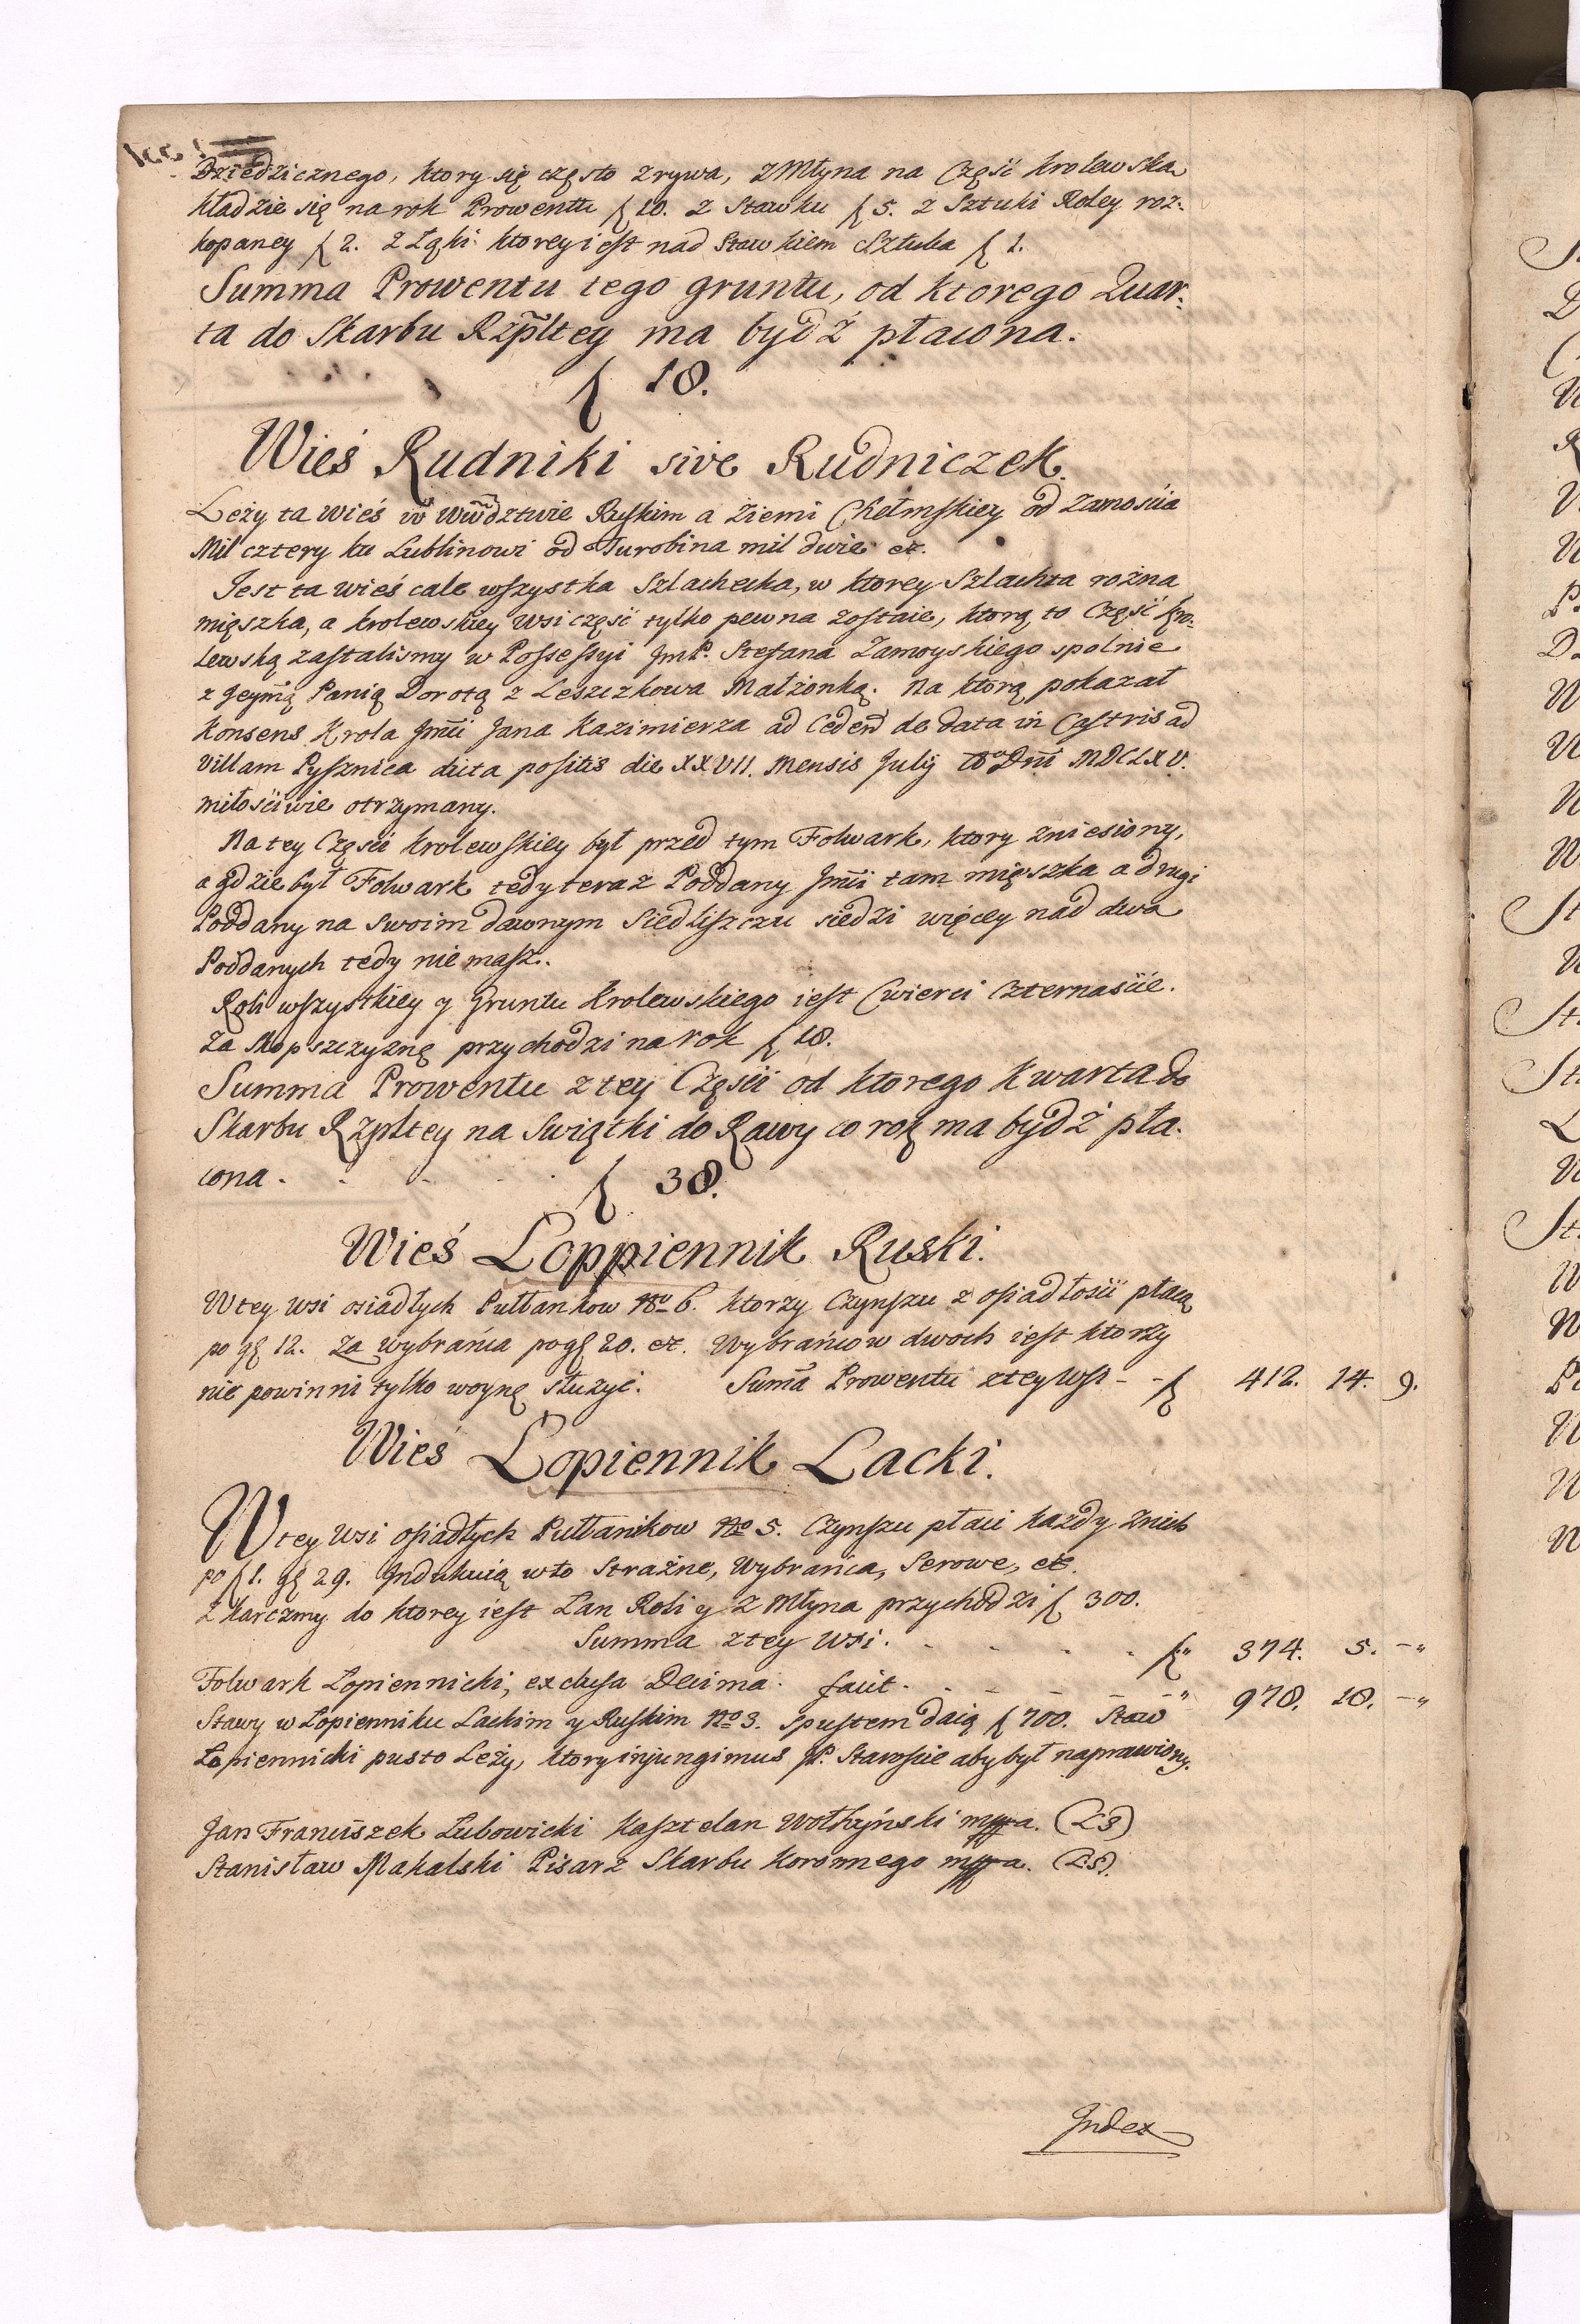 Dziedzicznego, ktory się często zrywa, z Młyna na Część krolewską
kładzie się na rok Prowentu f 10. z Stawku f 5. z Sztuki Roley roz-
kopaney f 2. z Łąki ktorey iest nad Stawkiem Sztuka f 1.
Summa Prowentu tego gruntu, od ktorego Quar-
ta do Skarbu Rzpltey ma bydź płacona.
f 18.
Wieś Rudniki sive Rudniczek.
Leży ta wieś w Wwdztwie Ruskim a Ziemi Chełmskiey od Zamościa
Mil cztery ku Lublinowi od Turobina mil dwie etc.
Jest ta wieś cale wszystka Szlachecka, w ktorey Szlachta rożna
mięszka, a krolewskiey wsi część tylko pewna zostaie, ktorą to Część kro-
lewską zastalismy w Possessyi JmP. Stefana Zamoyskiego spolnie
z Jeymą Panią Dorotą z Leszczkowa Małżonką. Na ktorą pokazał
Konsens Krola Jmci Jana Kazimierza ad Ceden de data in Castris ad
Villam Pysznica dicta positis die XXVII. Mensis July Ao Dni MDCLXV.
miłościwie otrzymany.
Na tey Części Krolewskiey był przed tym Folwark, ktory zniesiony,
a gdzie był Folwark tedy teraz Poddany Jmci tam mięszka a drugi
Poddany na swoim dawnym Siedliszczu siedzi więcey nad dwa
Poddanych tedy nie masz.
Roli wszystkiey y Gruntu Krolewskiego iest Cwierci Czternaście.
Za Skopszczyznę przychodzi na rok f 18.
Summa Prowentu z tey Części od ktorego Kwarta do
Skarbu Rzpltey na Swiątki do Rawy co rok ma bydź pła-
cona . . . . . f 38.
Wieś Loppiennik Ruski.
W tey wsi osiadłych Pułłankow No 6. ktorzy Czynszu z osiadłości płacą
po gł 12. Za wybrańca po gł 20. etc. Wybrańcow dwoch iest ktorzy
nie powinni tylko woynę służyć. Summa Prowentu z tey Wsi - - f 412. 14. 9.
Wieś Lopiennik Lacki.
W tey wsi osiadłych Pułłanikow No 5. Czynszu płaci każdy z nich
po f 1. gł 29. Indukuią w to Strażne, Wybrańca, Serowe, etc.
z Karczmy do ktorey iest Łan Roli y z Młyna przychodzi f 300.
Summa z tey Wsi. . . . . f" 374. 5. -"
Folwark Lopiennicki, exclusa Decima. facit . . - - - -" 978. 18. -"
Stawy w Lopienniku Lackim y Ruskim No 3. spustem daią f 700. Staw
Lopiennicki pusto Leży, ktory injungimus JP. Staroście aby był naprawiony.
Jan Franciszek Lubowicki Kasztelan Wołhyński mppa. (LS)
Stanisław Makalski Pisarz Skarbu Koronnego mppa. (LS).
Index